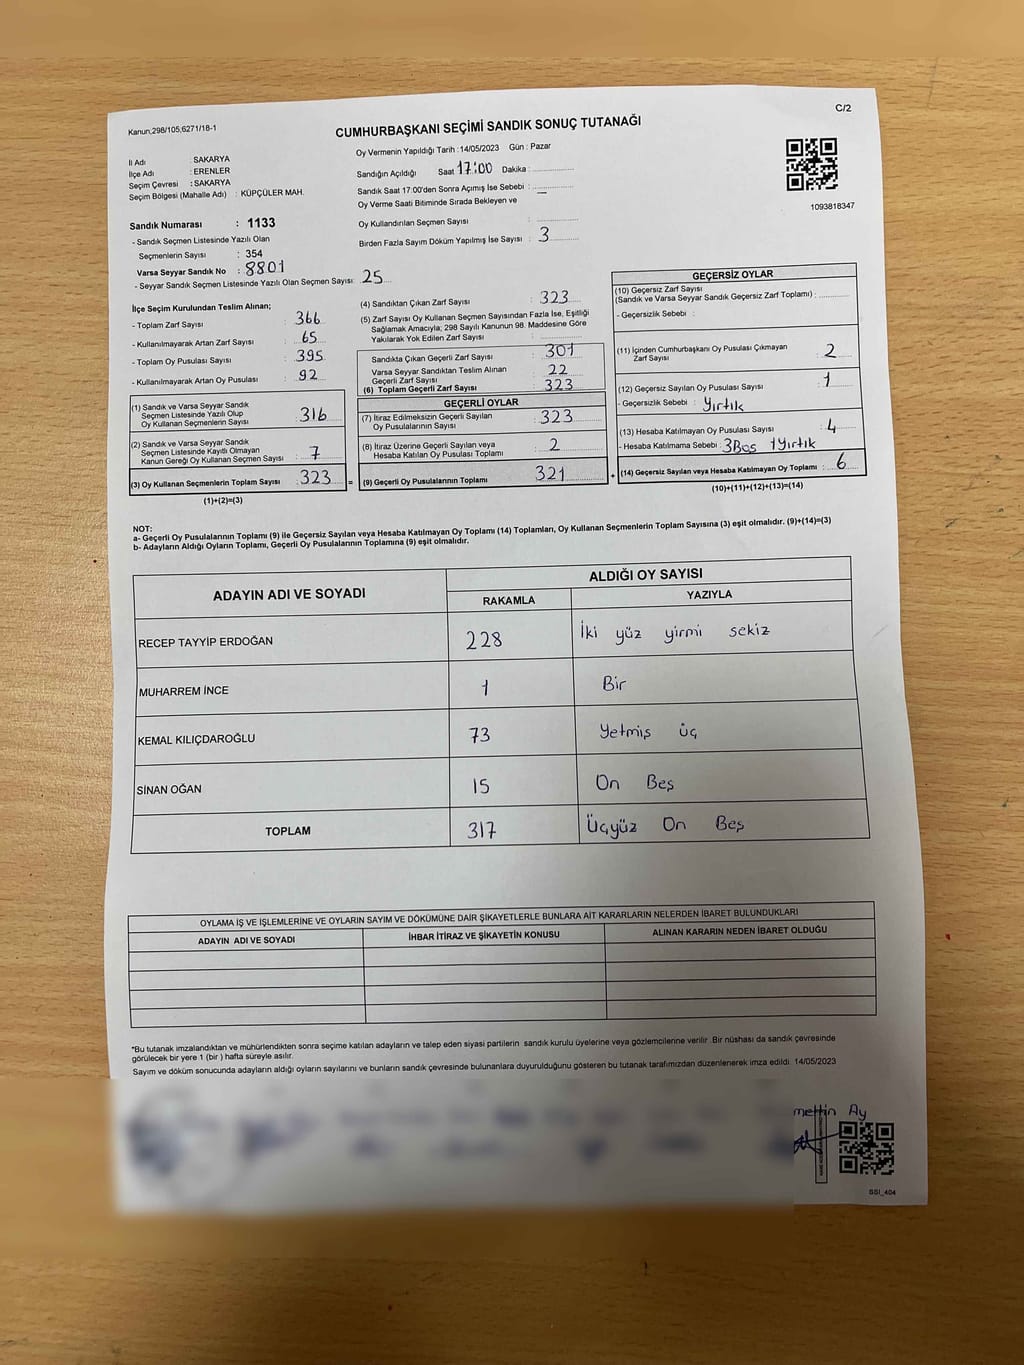 C/2
Kanun,298/105,6271/18-1
CUMHURBAŞKANI SEÇİMİ SANDIK SONUÇ TUTANAĞI
Oy Vermenin Yapıldığı Tarih :14/05/2023 Gün : Pazar
İl Adı : SAKARYA
İlçe Adı : ERENLER
Seçim Çevresi : SAKARYA
Seçim Bölgesi (Mahalle Adı) : KÜPÇÜLER MAH.
Sandığın Açıldığı Saat 17:00 Dakika :
Sandık Saat 17.00'den Sonra Açımış İse Sebebi : —
Oy Verme Saati Bitiminde Sırada Bekleyen ve
Oy Kullandırılan Seçmen Sayısı :
Birden Fazla Sayım Döküm Yapılmış İse Sayısı : 3
1093818347
Sandık Numarası : 1133
- Sandık Seçmen Listesinde Yazılı Olan
Seçmenlerin Sayısı : 354
Varsa Seyyar Sandık No : 8801
- Seyyar Sandık Seçmen Listesinde Yazılı Olan Seçmen Sayısı: 25
İlçe Seçim Kurulundan Teslim Alınan;
- Toplam Zarf Sayısı : 366
- Kullanılmayarak Artan Zarf Sayısı : 65
- Toplam Oy Pusulası Sayısı : 395
- Kullanılmayarak Artan Oy Pusulası : 92
(1) Sandık ve Varsa Seyyar Sandık
Seçmen Listesinde Yazılı Olup
Oy Kullanan Seçmenlerin Sayısı : 316
(2) Sandık ve Varsa Seyyar Sandık
Seçmen Listesinde Kayıtlı Olmayan
Kanun Gereği Oy Kullanan Seçmen Sayısı : 7
(3) Oy Kullanan Seçmenlerin Toplam Sayısı : 323 =
(1)+(2)=(3)
(4) Sandıktan Çıkan Zarf Sayısı : 323
(5) Zarf Sayısı Oy Kullanan Seçmen Sayısından Fazla İse, Eşitliği
Sağlamak Amacıyla; 298 Sayılı Kanunun 98. Maddesine Göre
Yakılarak Yok Edilen Zarf Sayısı :
Sandıkta Çıkan Geçerli Zarf Sayısı : 301
Varsa Seyyar Sandıktan Teslim Alınan
Geçerli Zarf Sayısı : 22
(6) Toplam Geçerli Zarf Sayısı : 323
GEÇERLİ OYLAR
(7) İtiraz Edilmeksizin Geçerli Sayılan
Oy Pusulasının Sayısı : 323
(8) İtiraz Üzerine Geçerli Sayılan veya
Hesaba Katılan Oy Pusulası Toplamı : 2
(9) Geçerli Oy Pusulalarının Toplamı : 321 +
GEÇERSİZ OYLAR
(10) Geçersiz Zarf Sayısı
(Sandık ve Varsa Seyyar Sandık Geçersiz Zarf Toplamı) :
- Geçersizlik Sebebi :
(11) İçinden Cumhurbaşkanı Oy Pusulası Çıkmayan
Zarf Sayısı : 2
(12) Geçersiz Sayılan Oy Pusulası Sayısı : 1
- Geçersizlik Sebebi : Yırtık
(13) Hesaba Katılmayan Oy Pusulası Sayısı : 4
- Hesaba Katılmama Sebebi : 3Boş 1Yırtık
(14) Geçersiz Sayılan veya Hesaba Katılmayan Oy Toplamı : 6
(10)+(11)+(12)+(13)=(14)
NOT:
a- Geçerli Oy Pusulalarının Toplamı (9) ile Geçersiz Sayılan veya Hesaba Katılmayan Oy Toplamı (14) Toplamları, Oy Kullanan Seçmenlerin Toplam Sayısına (3) eşit olmalıdır. (9)+(14)=(3)
b- Adayların Aldığı Oyların Toplamı, Geçerli Oy Pusulalarının Toplamına (9) eşit olmalıdır.
ADAYIN ADI VE SOYADI
ALDIĞI OY SAYISI
RAKAMLA YAZIYLA
RECEP TAYYİP ERDOĞAN 228 İki yüz yirmi sekiz
MUHARREM İNCE 1 Bir
KEMAL KILIÇDAROĞLU 73 Yetmiş üç
SİNAN OĞAN 15 On Beş
TOPLAM 317 Üçyüz On Beş
OYLAMA İŞ VE İŞLEMLERİNE VE OYLARIN SAYIM VE DÖKÜMÜNE DAİR ŞİKAYETLERLE BUNLARA AİT KARARLARIN NELERDEN İBARET BULUNDUKLARI
ADAYIN ADI VE SOYADI İHBAR İTİRAZ VE ŞİKAYETİN KONUSU ALINAN KARARIN NEDEN İBARET OLDUĞU
*Bu tutanak imzalandıktan ve mühürlendikten sonra seçime katılan adayların ve talep eden siyasi partilerin sandık kurulu üyelerine veya gözlemcilerine verilir .Bir nüshası da sandık çevresinde
görülecek bir yere 1 (bir ) hafta süreyle asılır.
Sayım ve döküm sonucunda adayların aldığı oyların sayılarını ve bunların sandık çevresinde bulunanlara duyurulduğunu gösteren bu tutanak tarafımızdan düzenlenerek imza edildi. 14/05/2023
mettin Ay
SSI_404